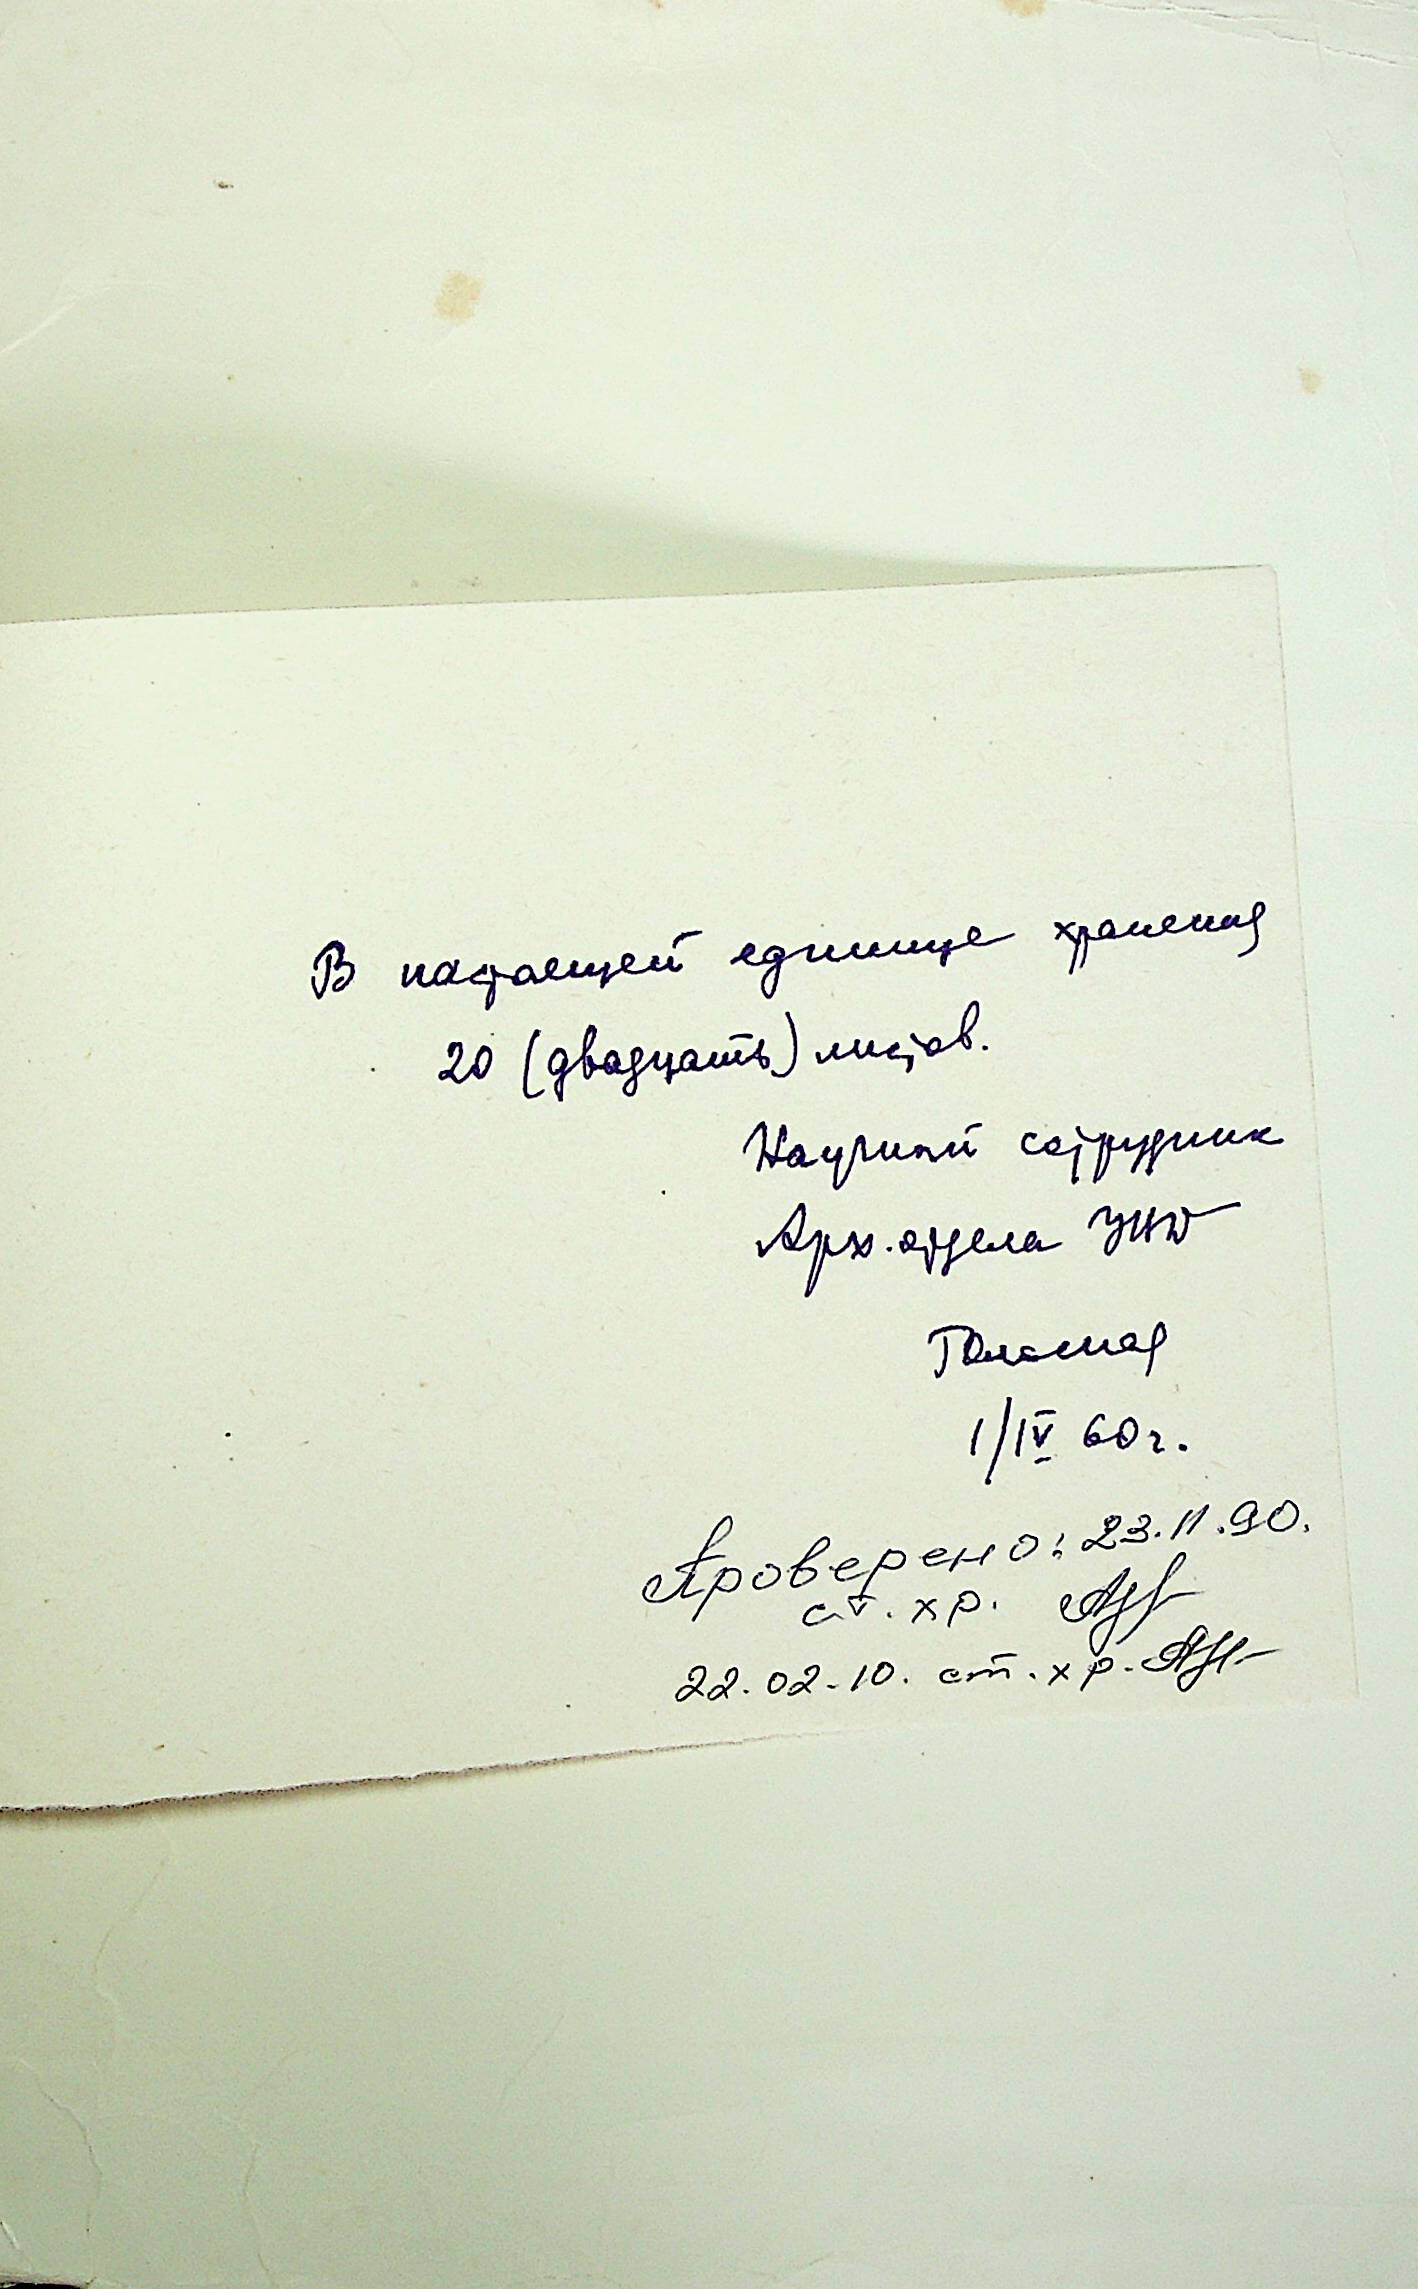 В настоящей единице хранения
20 (двадцать) листов.
Научный сотрудник
Арх. отдела
1/IV 60 г.
Проверено: 23.11.90.
ст. хр.
22.02.10. ст. хр.